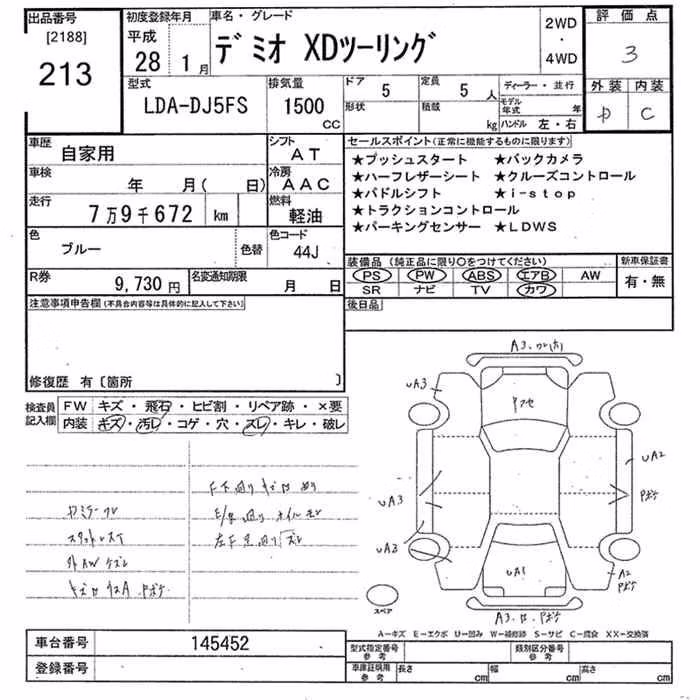 出品番号
[2188]
213
初度登録年月
平成
28 1月
車名・グレード
デミオ XDツーリング
2WD
・
4WD
評価点
3
外装 内装
C
型式
LDA-DJ5FS
排気量
1500
CC
ドア
5
形状
定員
5人
積載
kg
ディーラー・並行
モデル年式 年
ハンドル 左・右
車歴
自家用
シフト
AT
車検
年 月( 日)
冷房
AAC
走行
7万9千672 km
燃料
軽油
色
ブルー
色替
色コード
44J
R券
9,730円
名変通知期限
月 日
セールスポイント(正常に機能するものに限ります)
★プッシュスタート ★バックカメラ
★ハーフレザーシート ★クルーズコントロール
★パドルシフト ★i-stop
★トラクションコントロール
★パーキングセンサー ★LDWS
装備品(純正品に限り○をつけてください)
PS PW ABS エアB AW
SR ナビ TV カワ
新車保証書
有・無
後日品
注意事項申告欄(不具合内容等は具体的に記入して下さい)
修復歴 有〔箇所 〕
検査員記入欄
FW キズ・飛石・ヒビ割・リペア跡・×要
内装 キズ・汚レ・コゲ・穴・スレ・キレ・破レ
A3
UA3
UA2
UA3
Pボケ
UA3
UA1
A2
Pボケ
スペア
A-キズ E-エクボ U-凹み W-補修跡 S-サビ C-腐食 XX-交換済
車台番号
145452
登録番号
型式指定番号
参考
類別区分番号
参考
車庫証明用
参考
長さ cm 幅 cm 高さ cm